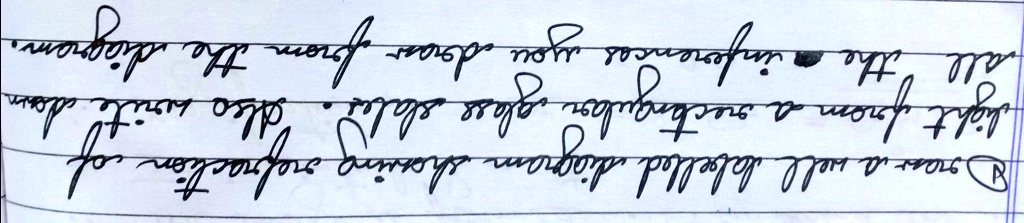 Draw a well labelled diagram showing refraction of
light from a rectangular glass slates. Also write down
all the inferences you draw from the diagram.